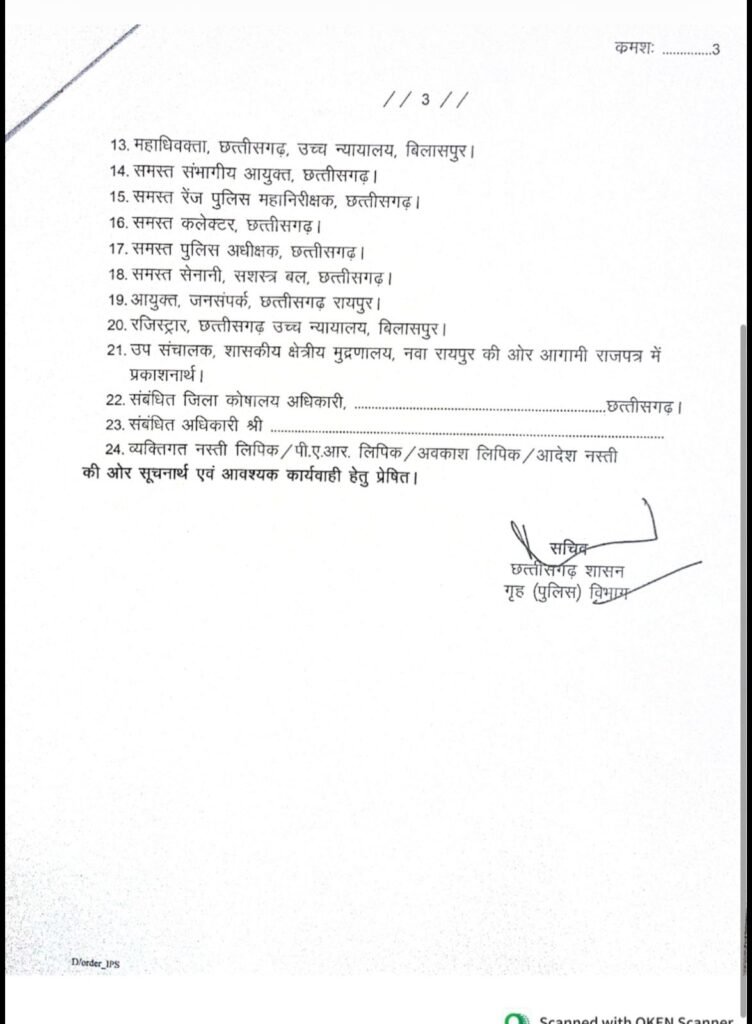 कमशः ..............3
// 3 //
13. महाधिवक्ता, छत्तीसगढ़, उच्च न्यायालय, बिलासपुर।
14. समस्त संभागीय आयुक्त, छत्तीसगढ़।
15. समस्त रेंज पुलिस महानिरीक्षक, छत्तीसगढ़।
16. समस्त कलेक्टर, छत्तीसगढ़।
17. समस्त पुलिस अधीक्षक, छत्तीसगढ़।
18. समस्त सेनानी, सशस्त्र बल, छत्तीसगढ़।
19. आयुक्त, जनसंपर्क, छत्तीसगढ़ रायपुर।
20. रजिस्ट्रार, छत्तीसगढ़ उच्च न्यायालय, बिलासपुर।
21. उप संचालक, शासकीय क्षेत्रीय मुद्रणालय, नवा रायपुर की ओर आगामी राजपत्र में
प्रकाशनार्थ।
22. संबंधित जिला कोषालय अधिकारी, ..............................................................छत्तीसगढ़।
23. संबंधित अधिकारी श्री ................................................................................................
24. व्यक्तिगत नस्ती लिपिक/पी.ए.आर. लिपिक/अवकाश लिपिक/आदेश नस्ती
की ओर सूचनार्थ एवं आवश्यक कार्यवाही हेतु प्रेषित।
सचिव
छत्तीसगढ़ शासन
गृह (पुलिस) विभाग
D/order_IPS
Scanned with OKEN Scanner